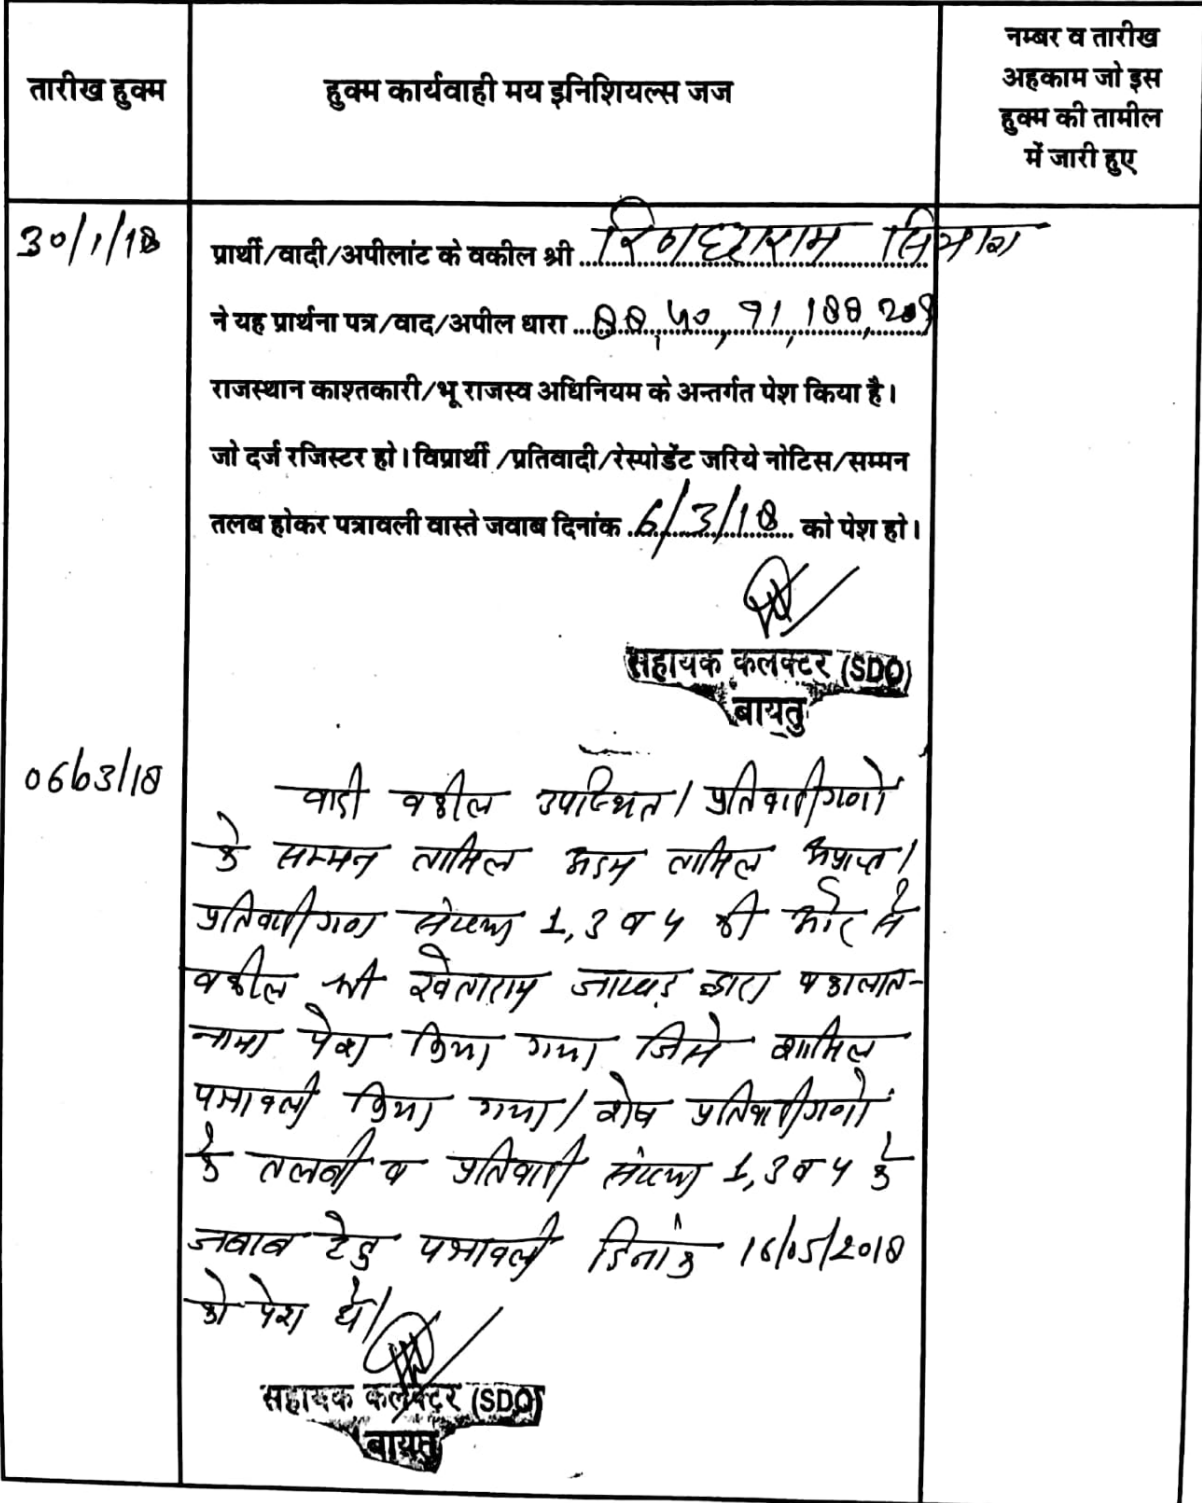 तारीख हुक्म
हुक्म कार्यवाही मय इनिशियल्स जज
नम्बर व तारीख
अहकाम जो इस
हुक्म की तामील
में जारी हुए
30/1/18
प्रार्थी/वादी/अपीलांट के वकील श्री रिणछाराम सियाग
ने यह प्रार्थना पत्र/वाद/अपील धारा 88, 40, 91, 188, 209
राजस्थान काश्तकारी/भू राजस्व अधिनियम के अन्तर्गत पेश किया है।
जो दर्ज रजिस्टर हो। विप्रार्थी /प्रतिवादी/रेस्पोडेंट जरिये नोटिस/सम्मन
तलब होकर पत्रावली वास्ते जवाब दिनांक 6/3/18 को पेश हो।
सहायक कलक्टर (SDO)
बायतु
06/03/18
वादी वकील उपस्थित। प्रतिवादीगणों
के सम्मन तामिल अदम तामिल अप्राप्त।
प्रतिवादीगण संख्या 1, 3 व 4 की ओर से
वकील श्री खेताराम जाखड़ द्वारा वकालात-
नामा पेश किया गया जिसे शामिल
पत्रावली किया गया। शेष प्रतिवादीगणों
के तलबी व प्रतिवादी संख्या 1, 3 व 4 के
जवाब हेतु पत्रावली दिनांक 16/05/2018
को पेश हो।
सहायक कलक्टर (SDO)
बायतु